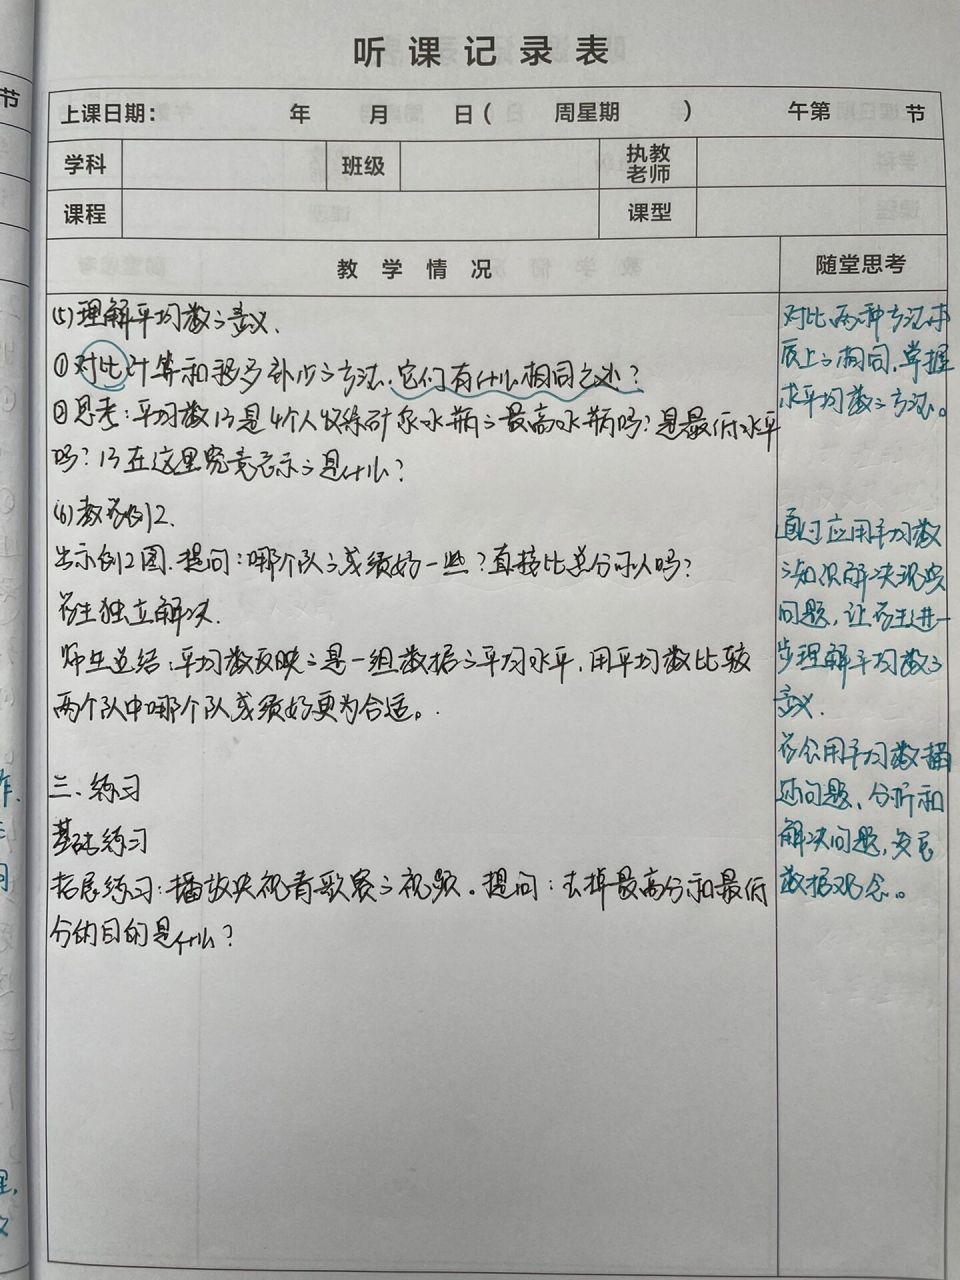 听课记录表
上课日期： 年 月 日（ 周星期 ） 午第 节
学科 班级 执教老师
课程 课型
教学情况 随堂思考
(5)理解平均数之意义.
①对比计算和移多补少之方法.它们有什么相同之处？
②思考：平均数13是4个人收集矿泉水瓶之最高水瓶吗？是最低水平
吗？13在这里究竟表示之是什么？
(6)教学例2.
出示例2图.提问：哪个队之成绩好一些？直接比总分可以吗？
学生独立解决.
师生总结：平均数反映之是一组数据之平均水平，用平均数比较
两个队中哪个队成绩好更为合适。
三.练习
基础练习
拓展练习：播放央视青歌赛之视频。提问：去掉最高分和最低
分的目的是什么？
对比两种方法本
质上之相同，掌握
求平均数之方法。
通过应用平均数
之知识解决现实
问题，让学生进一
步理解平均数之
意义.
学会用平均数描
述问题、分析和
解决问题，发展
数据观念。
节